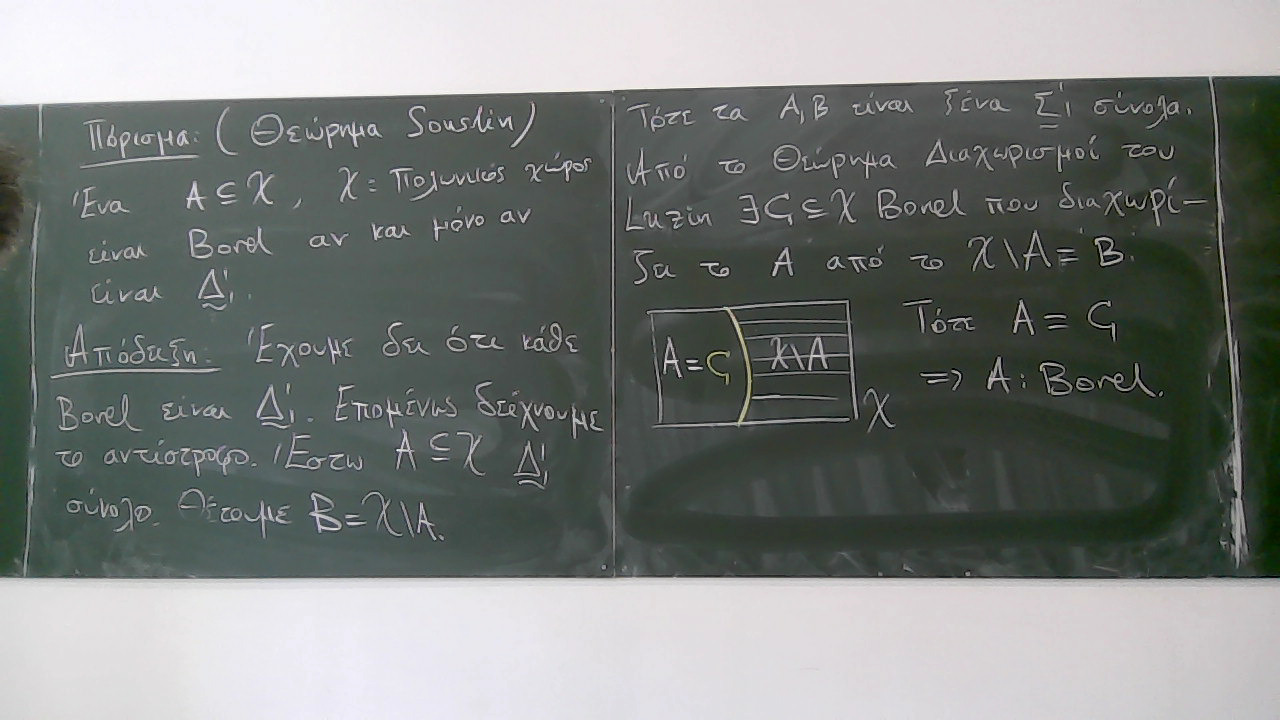 Πόρισμα: (Θεώρημα Souslin)
Ένα A ⊆ X, X = Πολωνικός χώρος
είναι Borel αν και μόνο αν
είναι Δ¹₁.
Απόδειξη: Έχουμε δει ότι κάθε
Borel είναι Δ¹₁. Επομένως δείχνουμε
το αντίστροφο. Έστω A ⊆ X Δ¹₁
σύνολο. Θέτουμε B = X\A.
Τότε τα A, B είναι ξένα Σ¹₁ σύνολα.
Από το Θεώρημα Διαχωρισμού του
Luzin ∃ C ⊆ X Borel που διαχωρί-
ζει το A από το X\A = B.
A = C X\A X
Τότε A = C
=> A: Borel.